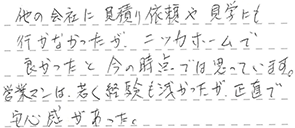 他の会社に見積り依頼や見学にも
行かなかったが、ニッカホームで
良かったと今の時点では思っています。
営業マンは、若く経験も浅かったが、正直で
安心感があった。